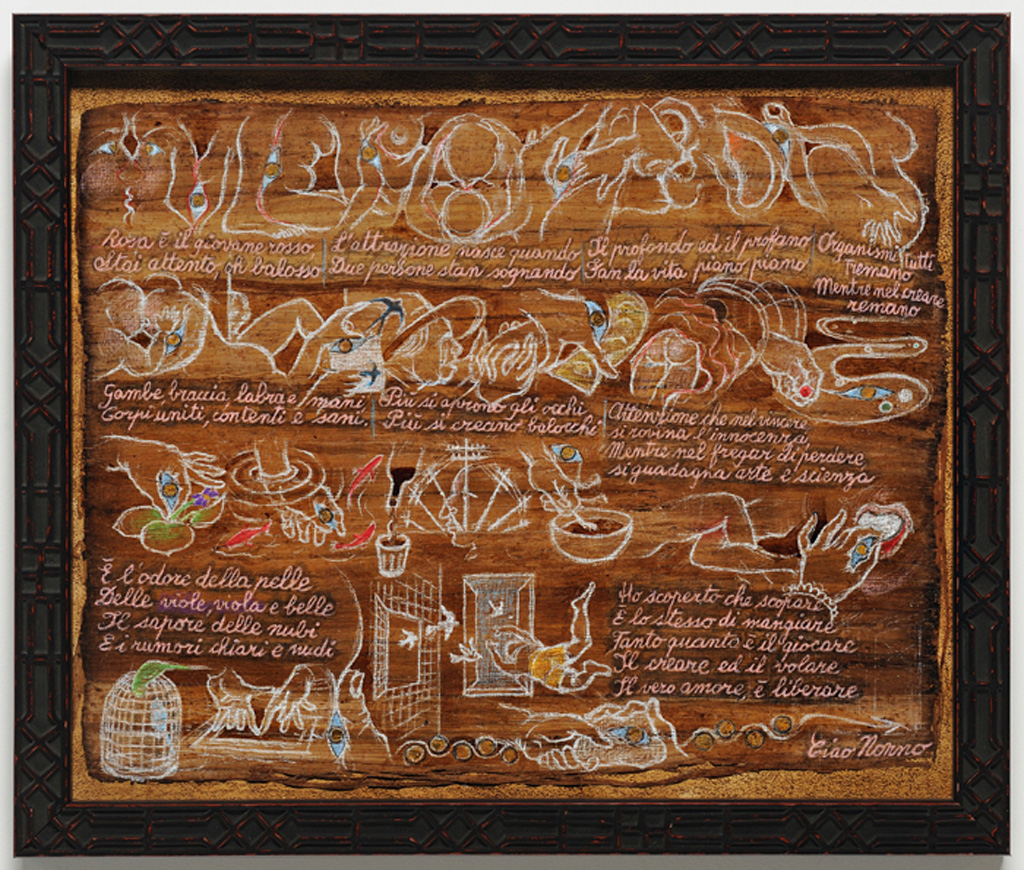 Rosa è il giovane rosso
Stai attento, oh balosso
L'attrazione nasce quando
Due persone stan sognando
Il profondo ed il profano
Fan la vita piano piano
Organismi tutti
Tremano
Mentre nel creare
remano
Gambe braccia labra e mani
Corpi uniti, contenti e sani.
Più si aprono gli occhi
Più si creano balocchi
Attenzione che nel vincere
si rovina l'innocenza,
Mentre nel fregar di perdere
si guadagna arte e scienza
È l'odore della pelle
Delle viole, viola e belle
Il sapore delle nubi
E i rumori chiari e nudi
Ho scoperto che scopare
È lo stesso di mangiare
Tanto quanto è il giocare
Il creare, ed il volare
Il vero amore, è liberare
Ciao Nonno